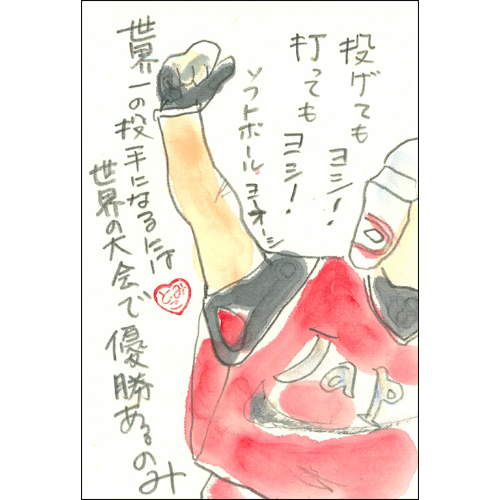 投げても ヨシ!
打っても ヨシ!
ソフトボール
世界一の投手になるには
世界の大会で優勝あるのみ
Jap